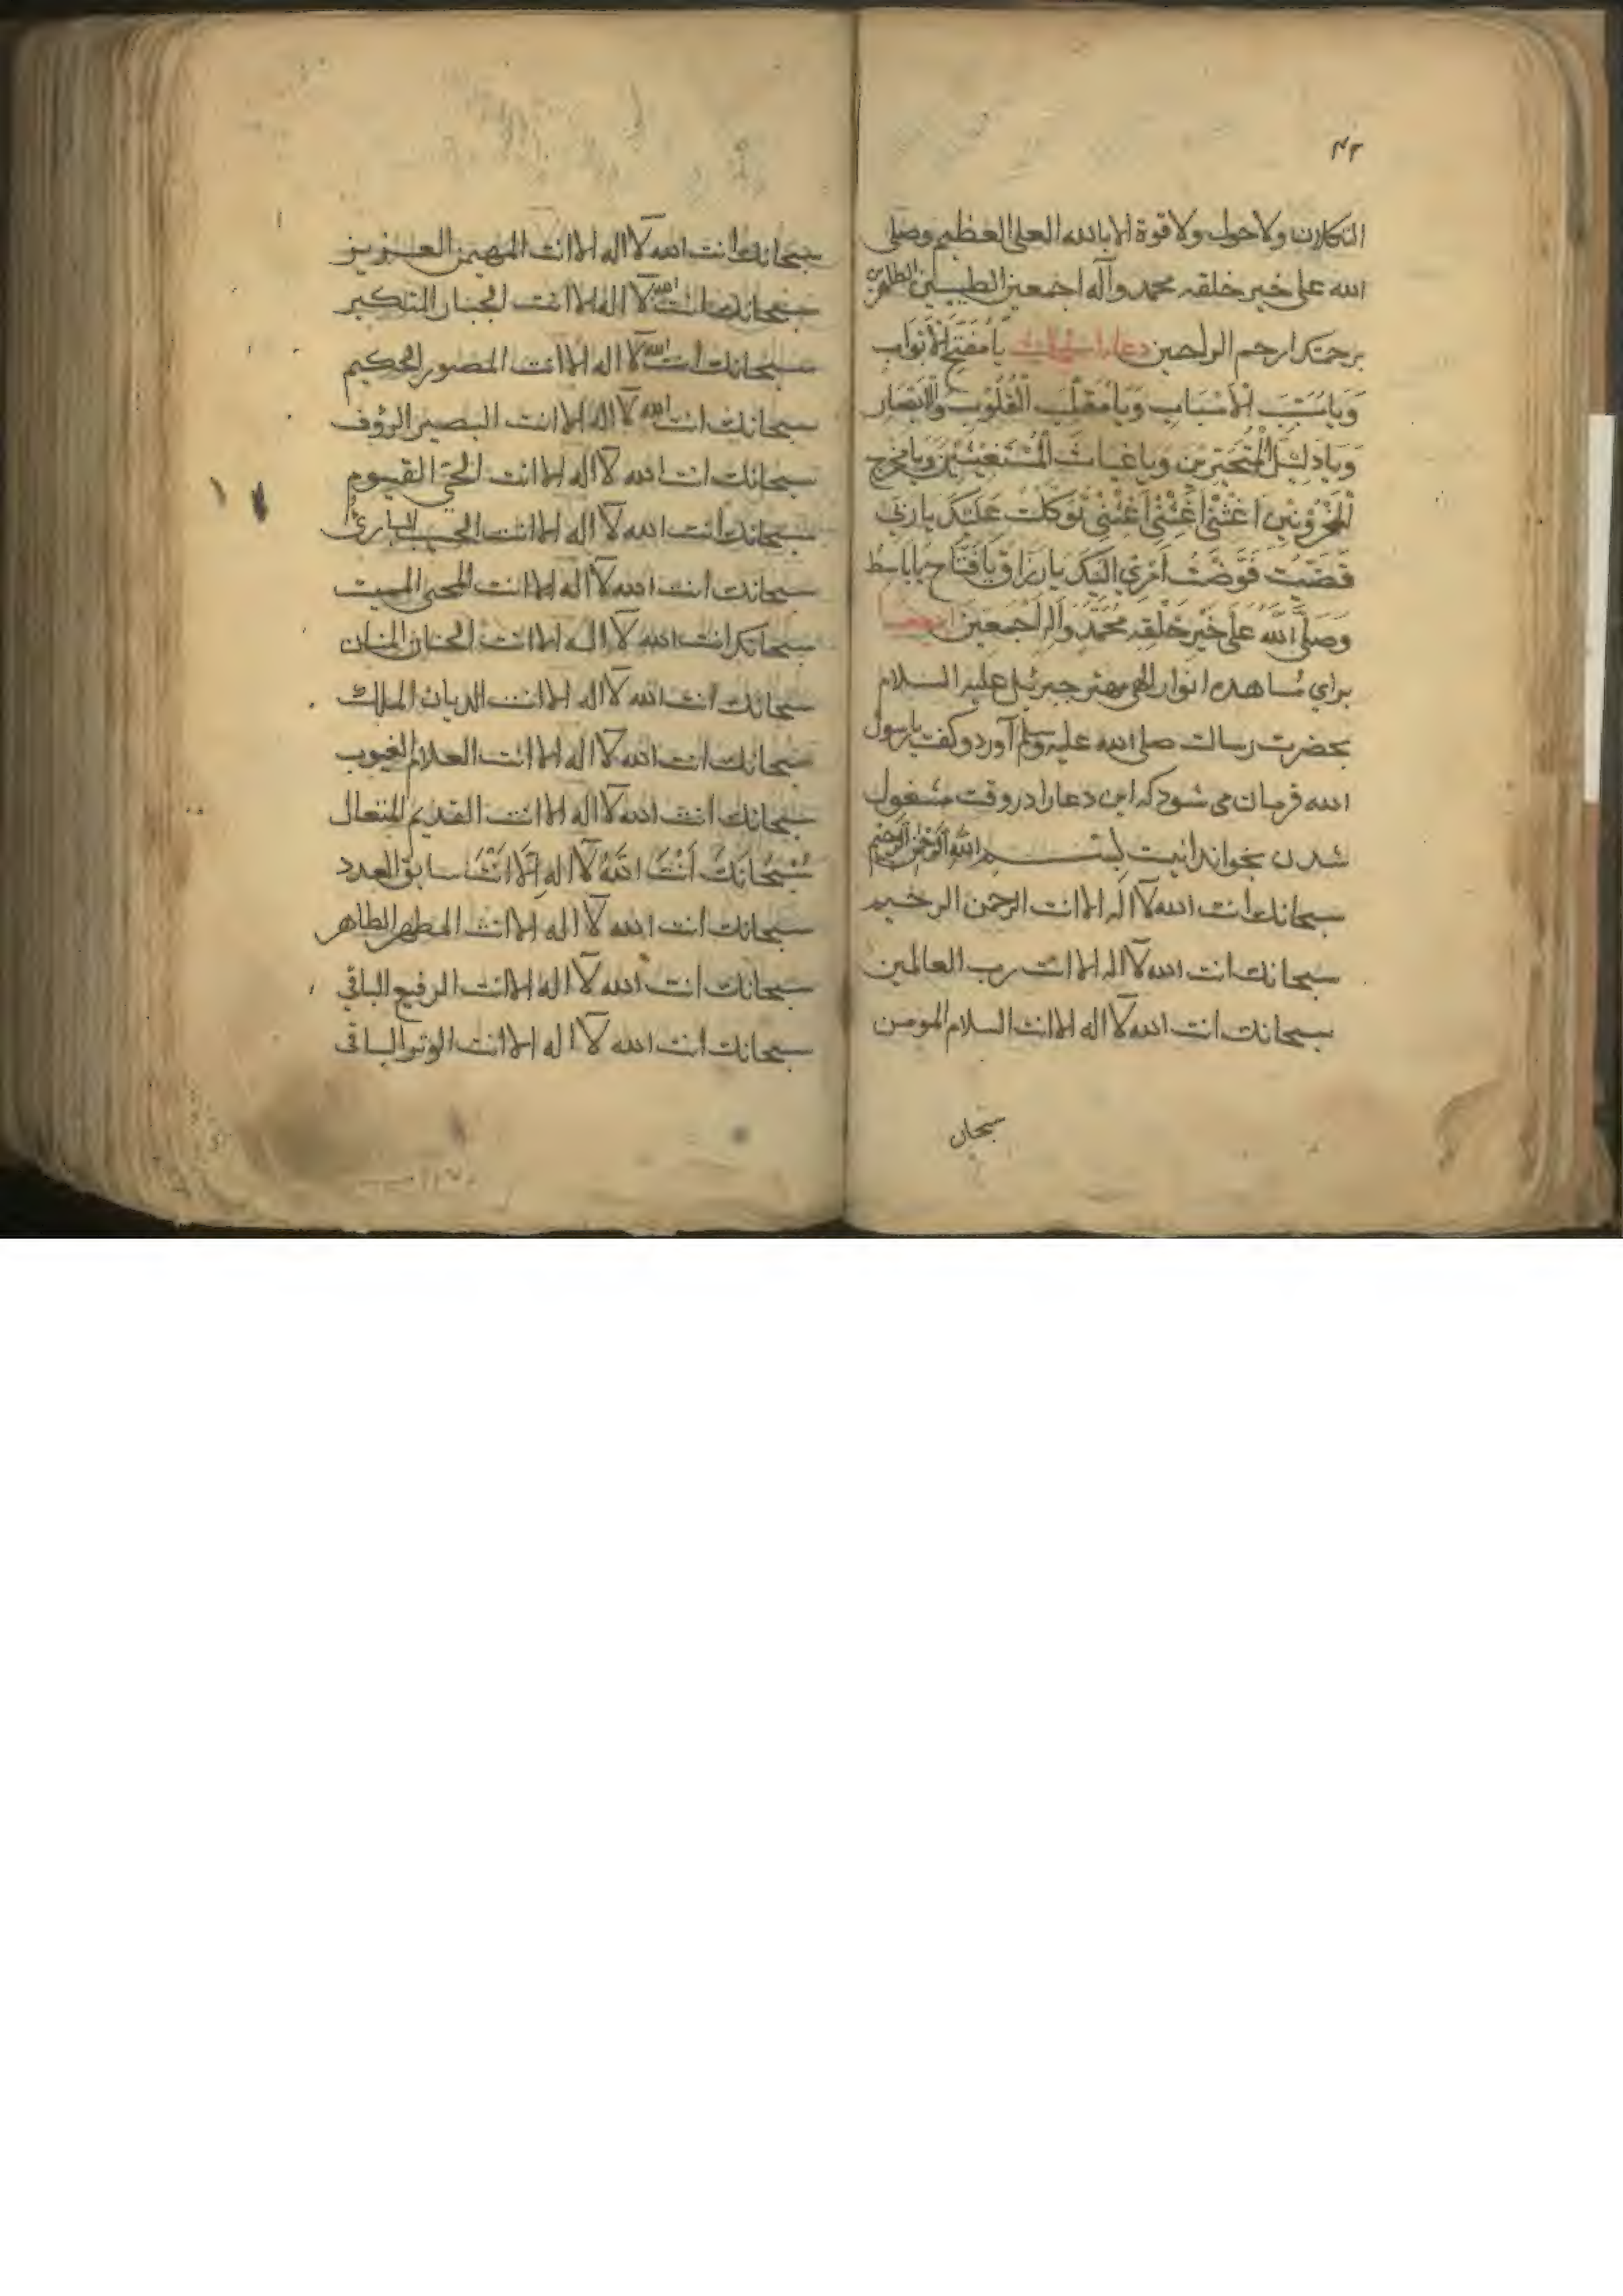 ٤٣
التكلان ولا حول ولا قوة الا بالله العلي العظيم وصلى
الله على خير خلقه محمد وآله اجمعين الطيبين الطاهرين
برحمتك ارحم الراحمين دعاء يَا مُفَتِّحَ الْأَبْوَابِ
وَيَا مُسَبِّبَ الْأَسْبَابِ وَيَا مُقَلِّبَ الْقُلُوْبِ وَالْأَبْصَارِ
وَيَا دَلِيْلَ الْمُتَحَيِّرِيْنَ وَيَا غِيَاثَ الْمُسْتَغِيْثِيْنَ وَيَا مُفَرِّحَ
الْمَحْزُوْنِيْنَ اَغِثْنِيْ اَغِثْنِيْ اَغِثْنِيْ تَوَكَّلْتُ عَلَيْكَ يَا رَبِّيْ
فَوَّضْتُ اَمْرِيْ اِلَيْكَ يَا رَزَّاقُ يَا فَتَّاحُ يَا بَاسِطُ
وَصَلَّى اللّٰهُ عَلَى خَيْرِ خَلْقِهِ مُحَمَّدٍ وَآلِهِ اَجْمَعِيْنَ
براي مشاهده انوار الهي مهتر جبرئيل عليه السلام
بحضرت رسالت صلى الله عليه وسلم آورد وكفت يا رسول
الله فرمان مي شود كه اين دعا را در وقت مشغول
شدن بخواند اينست بِسْمِ اللّٰهِ الرَّحْمٰنِ الرَّحِيْمِ
سبحانك انت الله لا اله الا انت الرحمن الرحيم
سبحانك انت الله لا اله الا انت رب العالمين
سبحانك انت الله لا اله الا انت السلام المومن
سبحان
سبحانك انت الله لا اله الا انت المهيمن العزيز
سبحانك انت الله لا اله الا انت الجبار المتكبر
سبحانك انت الله لا اله الا انت المصور الحكيم
سبحانك انت الله لا اله الا انت البصير الرؤف
سبحانك انت الله لا اله الا انت الحي القيوم
سبحانك انت الله لا اله الا انت البارئ
سبحانك انت الله لا اله الا انت المحيي المميت
سبحانك انت الله لا اله الا انت الحنان المنان
سبحانك انت الله لا اله الا انت الديان الملك
سبحانك انت الله لا اله الا انت العلام الغيوب
سبحانك انت الله لا اله الا انت القديم المتعال
سُبْحَانَكَ أَنْتَ اللّٰهُ لَا اله اِلَّا اَنْتَ سابق العدد
سبحانك انت الله لا اله الا انت المطهر الطاهر
سبحانك انت الله لا اله الا انت الرفيع الباقي
سبحانك انت الله لا اله الا انت الوتر الباقي